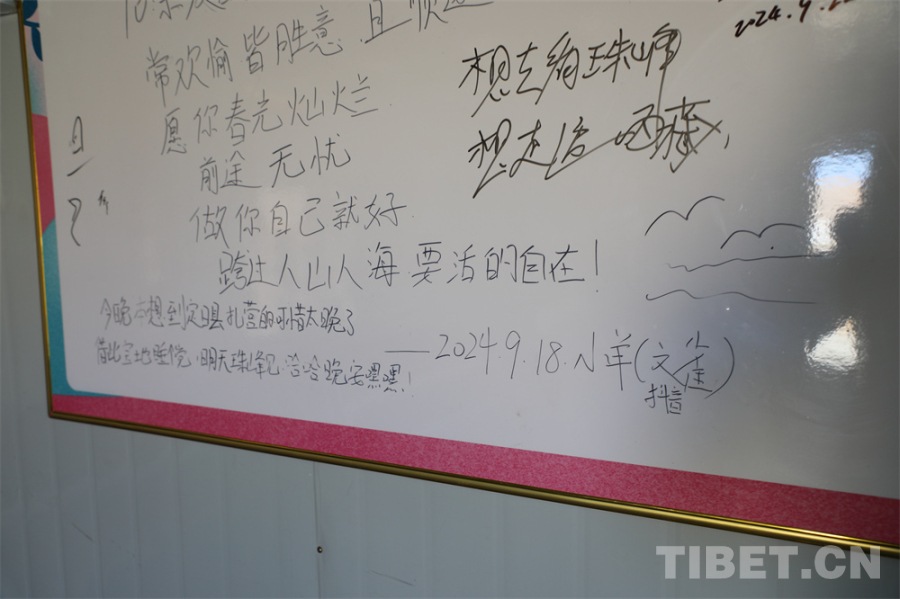 常欢愉皆胜意 且顺遂
愿你春光灿烂
前途无忧
做你自己就好
跨过人山人海 要活的自在!
今晚本想到定日县扎营的可惜太晚了
借此宝地睡觉,明天珠峰见,哈哈晚安嘿嘿!
——2024.9.18.小羊(文
抖音
2024.9.
想去看珠峰
想走遍西藏,
TIBET.CN